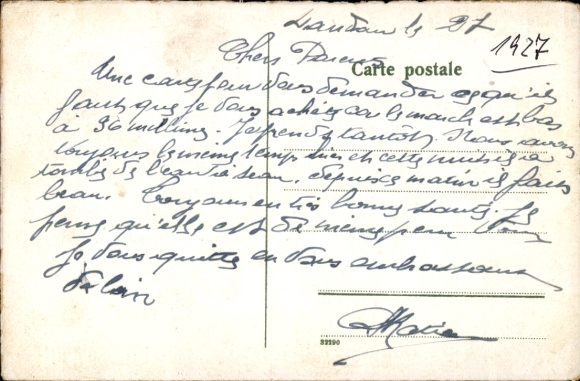 Landau le 27
1927
Chers Parents
Carte postale
Une carte pour vous demander ce qu'il
faut que je vous achète car le mark est bas
à 36 millions. J'aprend tantôt. Nous avons
toujours le même temps hier et cette nuit il a
tombé de l'eau à seau. depuis ce matin il fait
beau. Toujours en très bonne santé. Je
pense qu'elle est de même pour vous
Je vous quitte en vous embrassant
de loin
32290